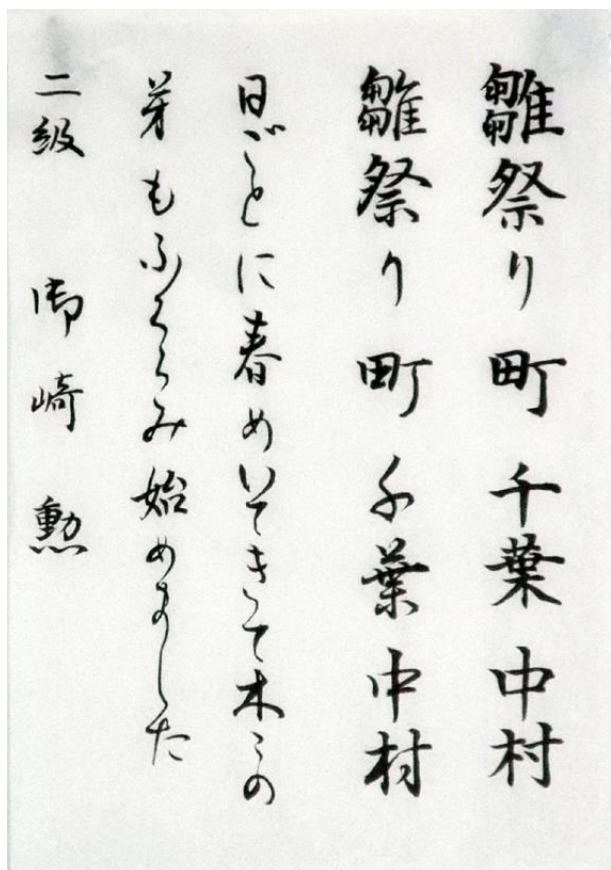 雛祭り町千葉中村
雛祭り町千葉中村
日ごとに春めいてきて木々の
芽もふくらみ始めました
二級 御崎勲